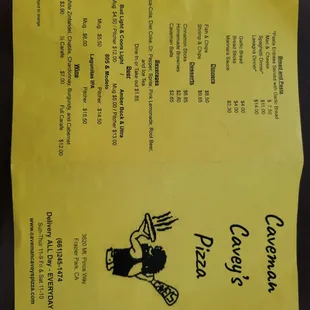 Caveman
Cavey's
Pizza
3620 Mt. Pinos Way
Frazier Park, CA
(661)245-1474
Delivery ALL Day - EVERYDAY
Sun-Thur 11-9 Fri & Sat 11-10
www.cavemancaveyspizza.com
Bread and Pasta
*Pasta Entrees Served with Garlic Bread
Mac & Cheese $ 7.50
Spaghetti Dinner $11.00
Lasagna Dinner $14.00
Garlic Bread $4.00
Bread Sticks $4.00
Marinara Sauce $
Dinners
Fish & Chips $8.50
Shrimp & Chips $9.85
Desserts
Cinnamon Sticks $5.85
Homemade Brownies $2.85
Caveman Balls $2.85
Beverages
Coke, Diet Coke, Dr. Pepper, Sprite, Pink Lemonade, Root Beer,
and Ice Tea
Dine In or Take out $1.85
Beer
Bud Light & Coors Light / Amber Bock & Ultra
Mug $4.50 / Pitcher $12.00 Mug $5.00 / Pitcher $13.00
805 & Modelo
Mug $5.50 Pitcher $14.50
Lagunitas IPA
Mug Pitcher $15.50
Wines
White Zinfandel, Chablis, Chardonnay, Burgundy, and Cabernet
$3.90 ½ Carafe $7.00 Full Carafe $12.00